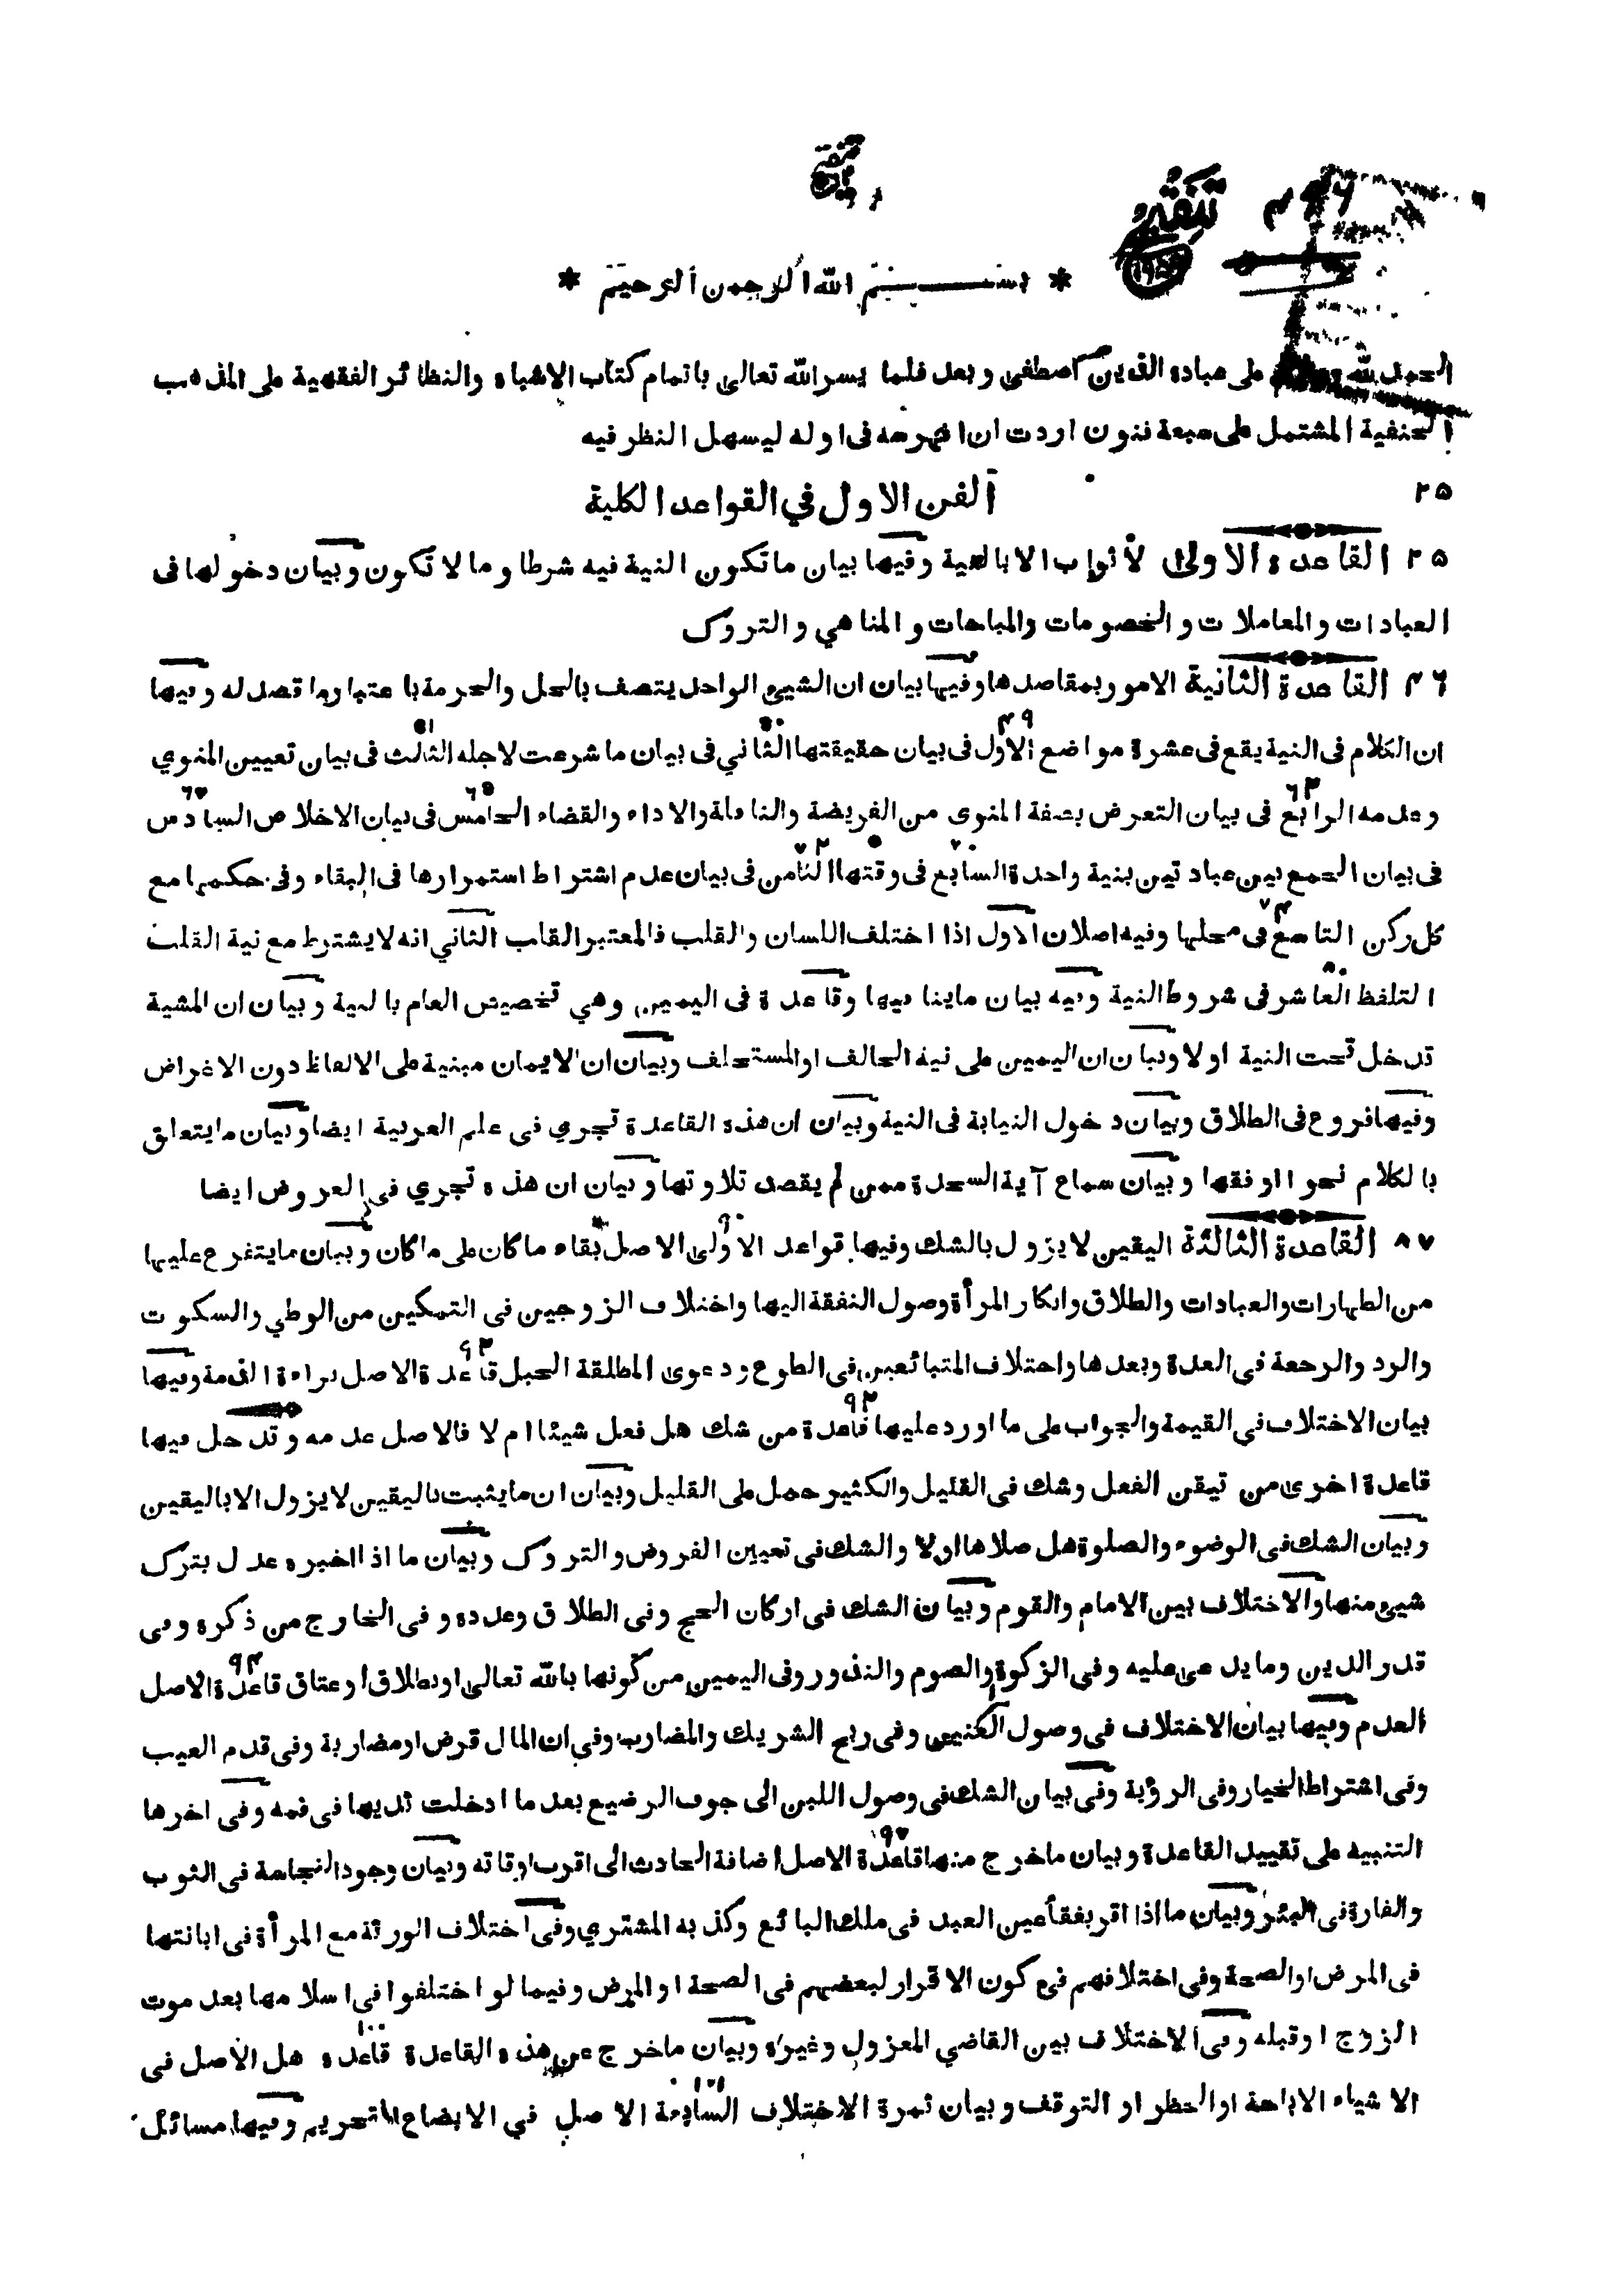 * بســـــم الله الرحمن الرحيم *
الحمد لله على عباده الذين اصطفى وبعد فلما يسر الله تعالى باتمام كتاب الاشباه والنظائر الفقهية على المذهب
الحنفية المشتمل على سبعة فنون اردت ان افهرسه فى اوله ليسهل النظر فيه
٢٥ الفن الاول في القواعد الكلية
٢٥ القاعدة الاولى لا ثواب الا بالنية وفيها بيان ما تكون النية فيه شرطا وما لا تكون وبيان دخولها فى
العبادات والمعاملات والخصومات والمباحات والمناهي والتروك
٤٦ القاعدة الثانية الامور بمقاصدها وفيها بيان ان الشيئ الواحد يتصف بالحل والحرمة باعتبار ما قصد له وفيها
٤٩ ٥٠ ٥١
ان الكلام فى النية يقع فى عشرة مواضع الاول فى بيان حقيقتها الثاني فى بيان ما شرعت لاجله الثالث فى بيان تعيين المنوي
٦٣ ٦٥ ٦٧
وعدمه الرابع فى بيان التعرض بصفة المنوى من الفريضة والنافلة والاداء والقضاء الخامس فى بيان الاخلاص السادس
٧٠ ٧٢
فى بيان الجمع بين عبادتين بنية واحدة السابع فى وقتها الثامن فى بيان عدم اشتراط استمرارها فى البقاء وفى حكمها مع
٧٤
كل ركن التاسع فى محلها وفيه اصلان الاول اذا اختلف اللسان والقلب فالمعتبر القلب الثاني انه لا يشترط مع نية القلب
٨٠
التلفظ العاشر فى شروط النية وفيه بيان ما ينافيها وقاعدة فى اليمين وهي تخصيص العام بالنية وبيان ان المشية
تدخل تحت النية اولا وبيان ان اليمين على نية الحالف او المستحلف وبيان ان الايمان مبنية على الالفاظ دون الاغراض
وفيها فروع فى الطلاق وبيان دخول النيابة فى النية وبيان ان هذه القاعدة تجري فى علم العربية ايضا وبيان ما يتعلق
بالكلام نحوا او فقها وبيان سماع آية السجدة ممن لم يقصد تلاوتها وبيان ان هذه تجري فى العروض ايضا
٩٠
٨٧ القاعدة الثالثة اليقين لا يزول بالشك وفيها قواعد الاولى الاصل بقاء ما كان على ما كان وبيان ما يتفرع عليها
من الطهارات والعبادات والطلاق وانكار المرأة وصول النفقة اليها واختلاف الزوجين فى التمكين من الوطي والسكوت
٩٢
والرد والرجعة فى العدة وبعدها واختلاف المتبائعين فى الطوع ودعوى المطلقة الحبل قاعدة الاصل براءة الذمة وفيها
٩٣
بيان الاختلاف في القيمة والجواب على ما اورد عليها قاعدة من شك هل فعل شيئا ام لا فالاصل عدمه وتدخل فيها
قاعدة اخرى من تيقن الفعل وشك فى القليل والكثير حمل على القليل وبيان ان ما يثبت باليقين لا يزول الا باليقين
وبيان الشك فى الوضوء والصلوة هل صلاها اولا والشك فى تعيين الفروض والتروك وبيان ما اذا اخبره عدل بترك
شيئ منها والاختلاف بين الامام والقوم وبيان الشك فى اركان الحج وفى الطلاق وعدده وفى الخارج من ذكره وفى
٩٤
قدر الدين وما يدعى عليه وفى الزكوة والصوم والنذور وفى اليمين من كونها بالله تعالى او بطلاق او عتاق قاعدة الاصل
العدم وفيها بيان الاختلاف فى وصول العنين وفى ربح الشريك والمضارب وفى ان المال قرض او مضاربة وفى قدم العيب
وفى اشتراط الخيار وفى الرؤية وفى بيان الشك فى وصول اللبن الى جوف الرضيع بعد ما ادخلت ثديها فى فمه وفى اخرها
٩٧
التنبيه على تقييد القاعدة وبيان ما خرج منها قاعدة الاصل اضافة الحادث الى اقرب اوقاته وبيان وجود النجاسة فى الثوب
والفارة فى البئر وبيان ما اذا اقر بفقأ عين العبد فى ملك البائع وكذبه المشتري وفى اختلاف الورثة مع المرأة فى ابانتها
فى المرض او الصحة وفى اختلافهم فى كون الاقرار لبعضهم فى الصحة او المرض وفيما لو اختلفوا فى اسلامها بعد موت
١٠٠
الزوج او قبله وفى الاختلاف بين القاضي المعزول وغيره وبيان ما خرج عن هذه القاعدة قاعده هل الاصل فى
الاشياء الاباحة او الحظر او التوقف وبيان ثمرة الاختلاف الاصل في الابضاع التحريم وفيها مسائل